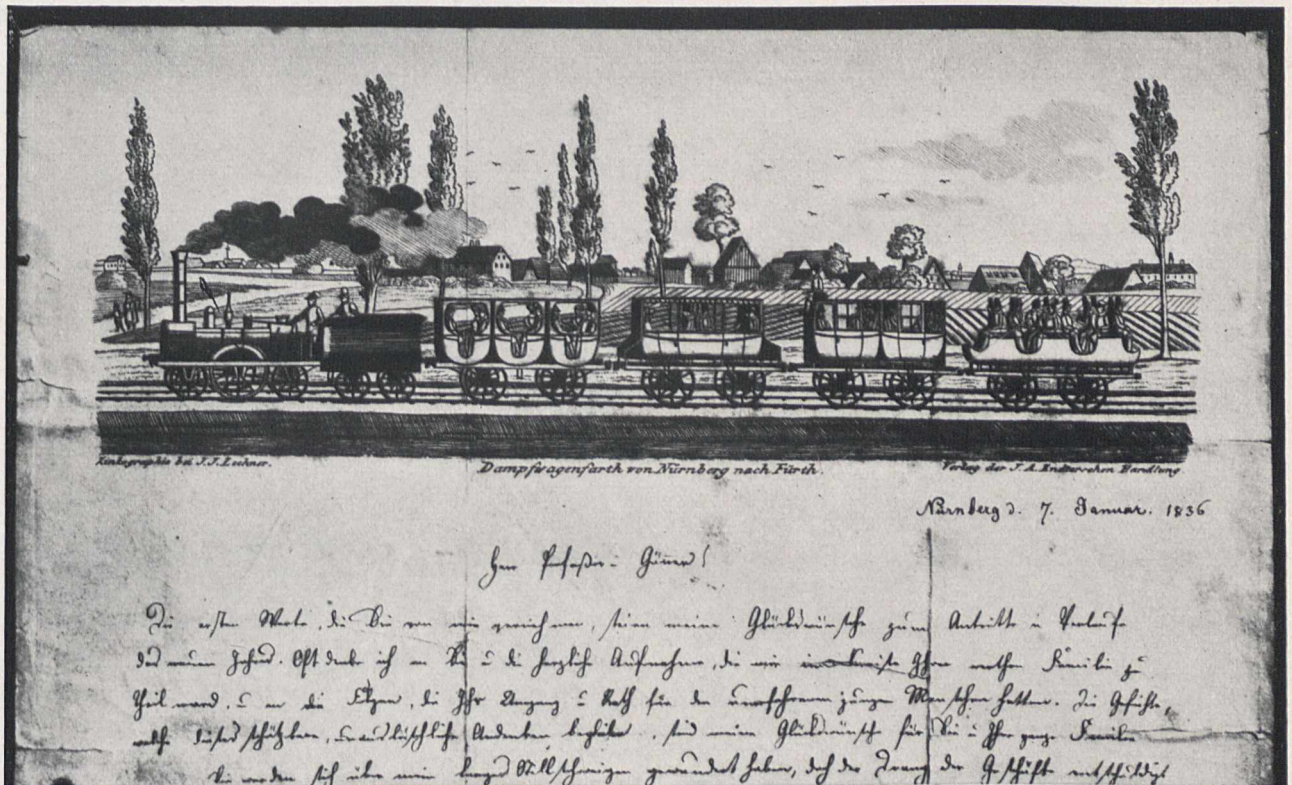 Zinkographie bei J. J. Lechner.
Dampfwagenfarth von Nürnberg nach Fürth.
Verlag der J. A. Endterschen Handlung
Nürnberg d. 7. Januar. 1836
Herr Professor Gönner!
Die ersten Worte, die Sie von mir, seien meine Glückwünsche zum Antritte u Verlaufe
des neuen Jahres. Oft denke ich an Sie u die herzliche Aufnahme, die mir Familie zu
Theil ward, u an die, die Ihr Umgang u Rath für den unerfahrenen jungen Menschen hatten. Die Gefühle,
welche dieses schätzbare, unauslöschliche Andenken, sind meine Glückwünsche für Sie u Ihre ganze Familie
Sie werden sich über mein langes Stillschweigen gewundert haben, doch der Drang der Geschäfte entschuldigt